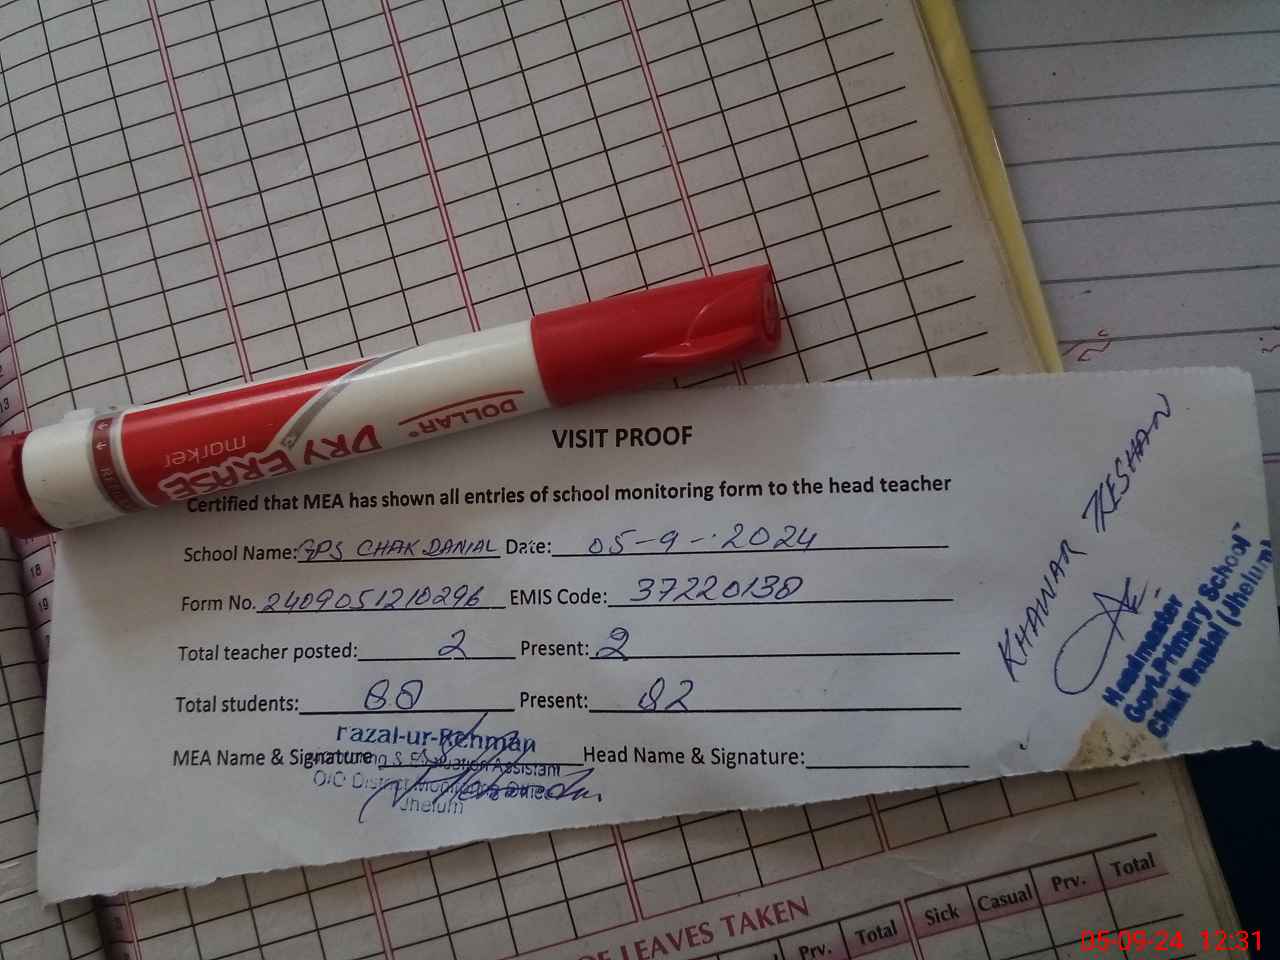 DOLLAR®
DRY ERASE
marker
VISIT PROOF
Certified that MEA has shown all entries of school monitoring form to the head teacher
School Name: GPS CHAK DANIAL Date: 05-9-2024
Form No. 2409051210296 EMIS Code: 37220138
Total teacher posted: 2 Present: 2
Total students: 88 Present: 82
MEA Name & Signature Head Name & Signature:
Fazal-ur-Rehman
Monitoring & Evaluation Assistant
O/O District Monitoring Office
Jhelum
KHAWAR
Headmaster
Govt. Primary School
Chak Danial (Jhelum)
OF LEAVES TAKEN
Prv. Total Sick Casual Prv. Total
13
18
19
05-09-24 12:31